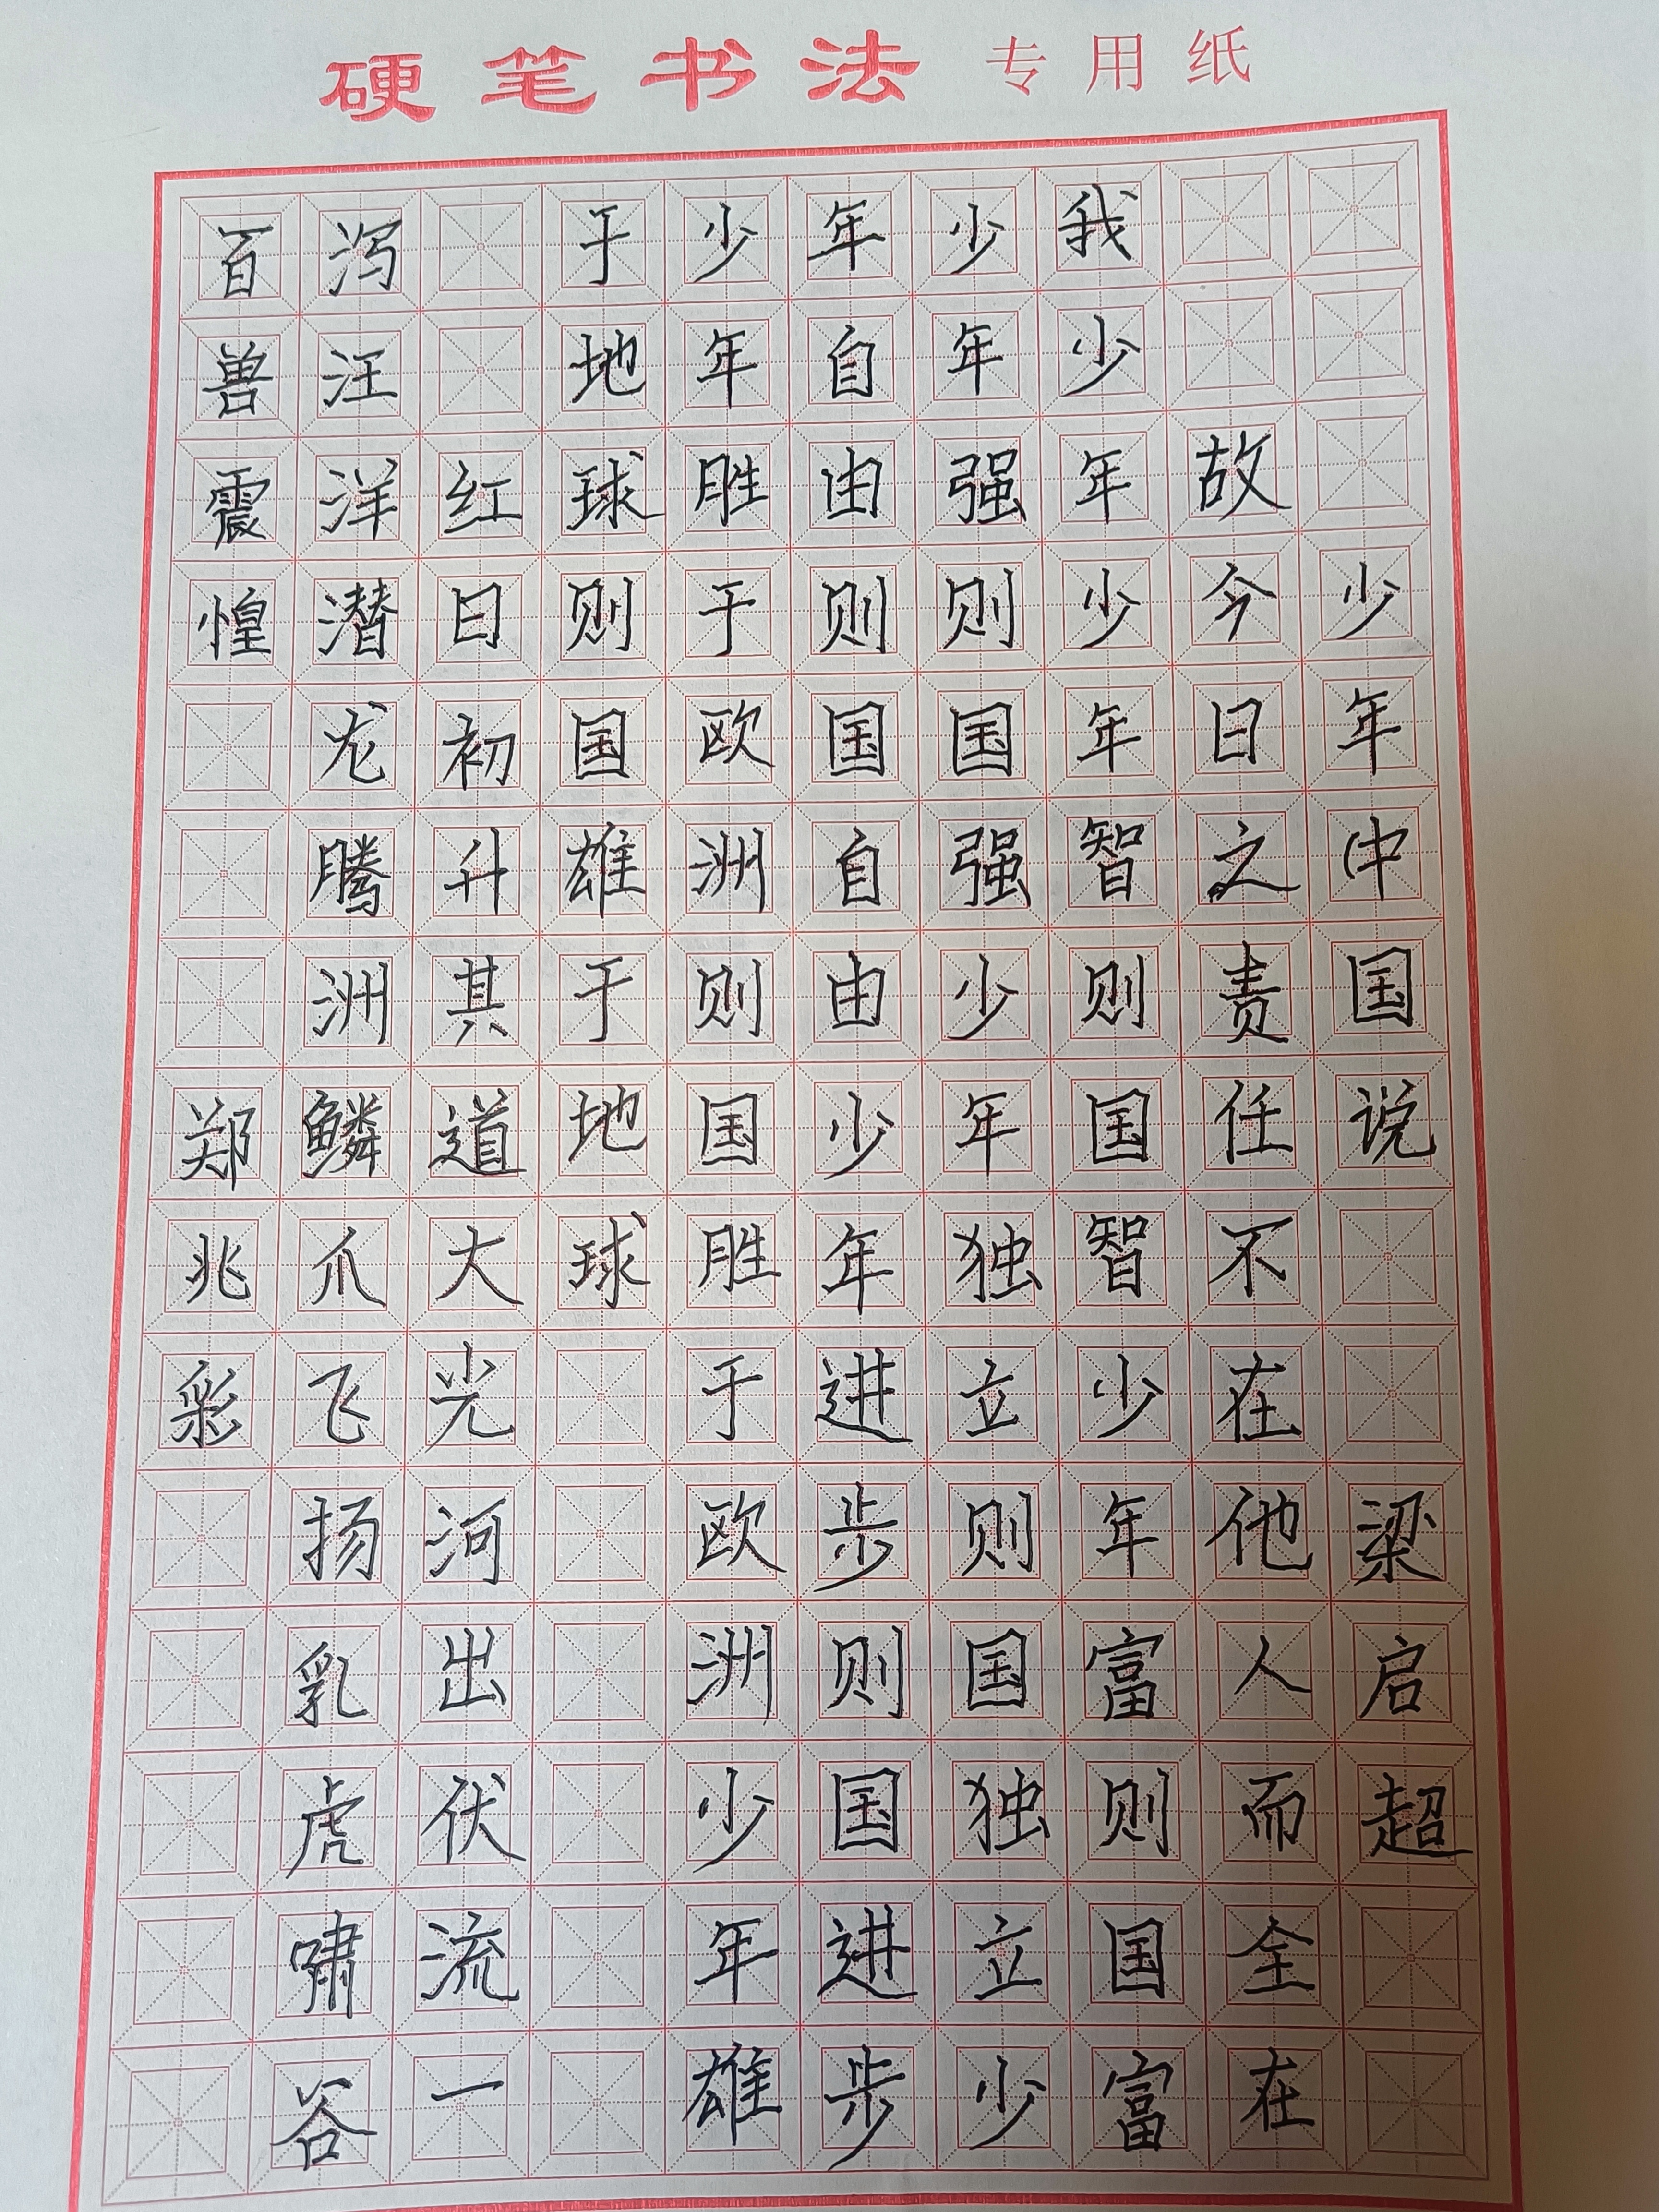 硬笔书法专用纸
少年中国说 梁启超
故今日之责任不在他人而全在
我少年少年智则国智少年富则国富
少年强则国强少年独立则国独立少
年自由则国自由少年进步则国进步
少年胜于欧洲则国胜于欧洲少年雄
于地球则国雄于地球
红日初升其道大光河出伏流一
泻汪洋潜龙腾洲鳞爪飞扬乳虎啸谷
百兽震惶 郑兆彩